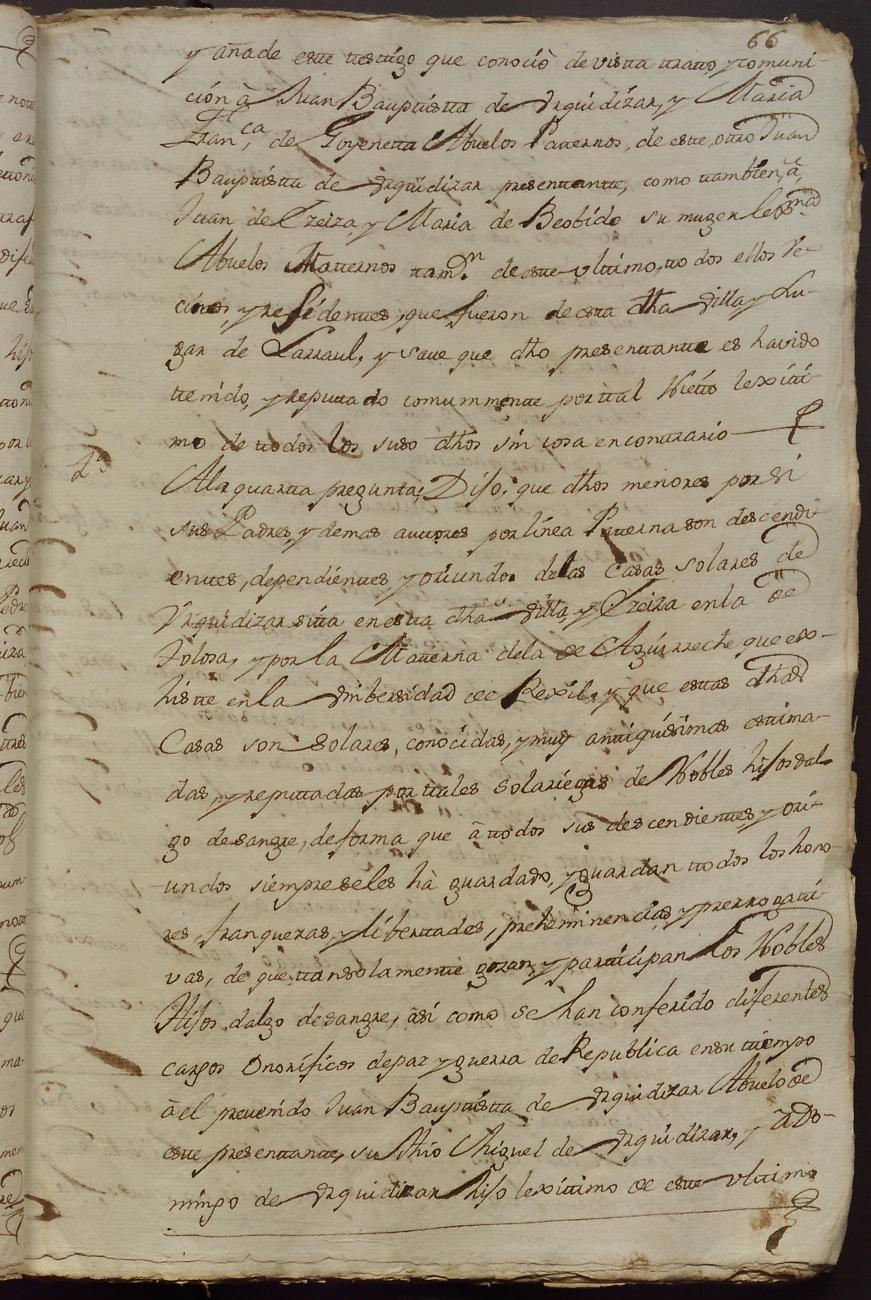 66
y añade este testigo que conociò de vista tratto, y comuni-
ción à Juan Bauptista de Vrquidizar, y Maria
Fran.ca de Goyenetta Abuelos Paternos, de este, otro Juan
Bauptista de Vrquidizar presentante, como tambien, à,
Juan de Ezeiza, y Maria de Beobide su muger lexma
Abuelos Maternos tamvn de este vltimo, todos ellos Ve-
cinos, y residentes, que fueron de esta dha Villa, y Lu-
gar de Larraul, y save que dho presentante es havido
tenido, y reputtado comummente por tal Nietto lexiti-
mo de todos los suso dhos sin cosa en contrario
4a
A la quarta pregunta; Dijo, que dhos menores por si
sus Padres, y demas autores por linea Paterna son descendi-
entes, dependientes y oriundos de las Casas Solares de
Vrquidizar sitta en esta dha Villa, y Ezeiza en la de
Tolosa, y por la Materna de la de Azurreche que exs-
histe en la Vnibersidad de Rexil, y que estas dhas
Casas son Solares, conocidas, y muy antiguisimas estima-
das, y reputtadas por tales solariegas de Nobles hijosdal-
go de sangre, de forma que à todos sus descendientes, y ori-
undos siempre se les hà guardado, y guardan todos los hono
res, franquezas, y libertades, preheminencias, y prerrogati-
vas, de que tan solamente gozan, y participan los Nobles
Hijos dalgo de sangre, àsi como se han conferido diferentes
cargos Onorificos de paz y guerra de Republica en su tiempo
à el prevenido Juan Bauptista de Vrquidizar Abuelo de
este presentante, su thio Miguel de Vrquidizar, y à Do-
mingo de Vrquidizar hijo lexitimo de este vltimo